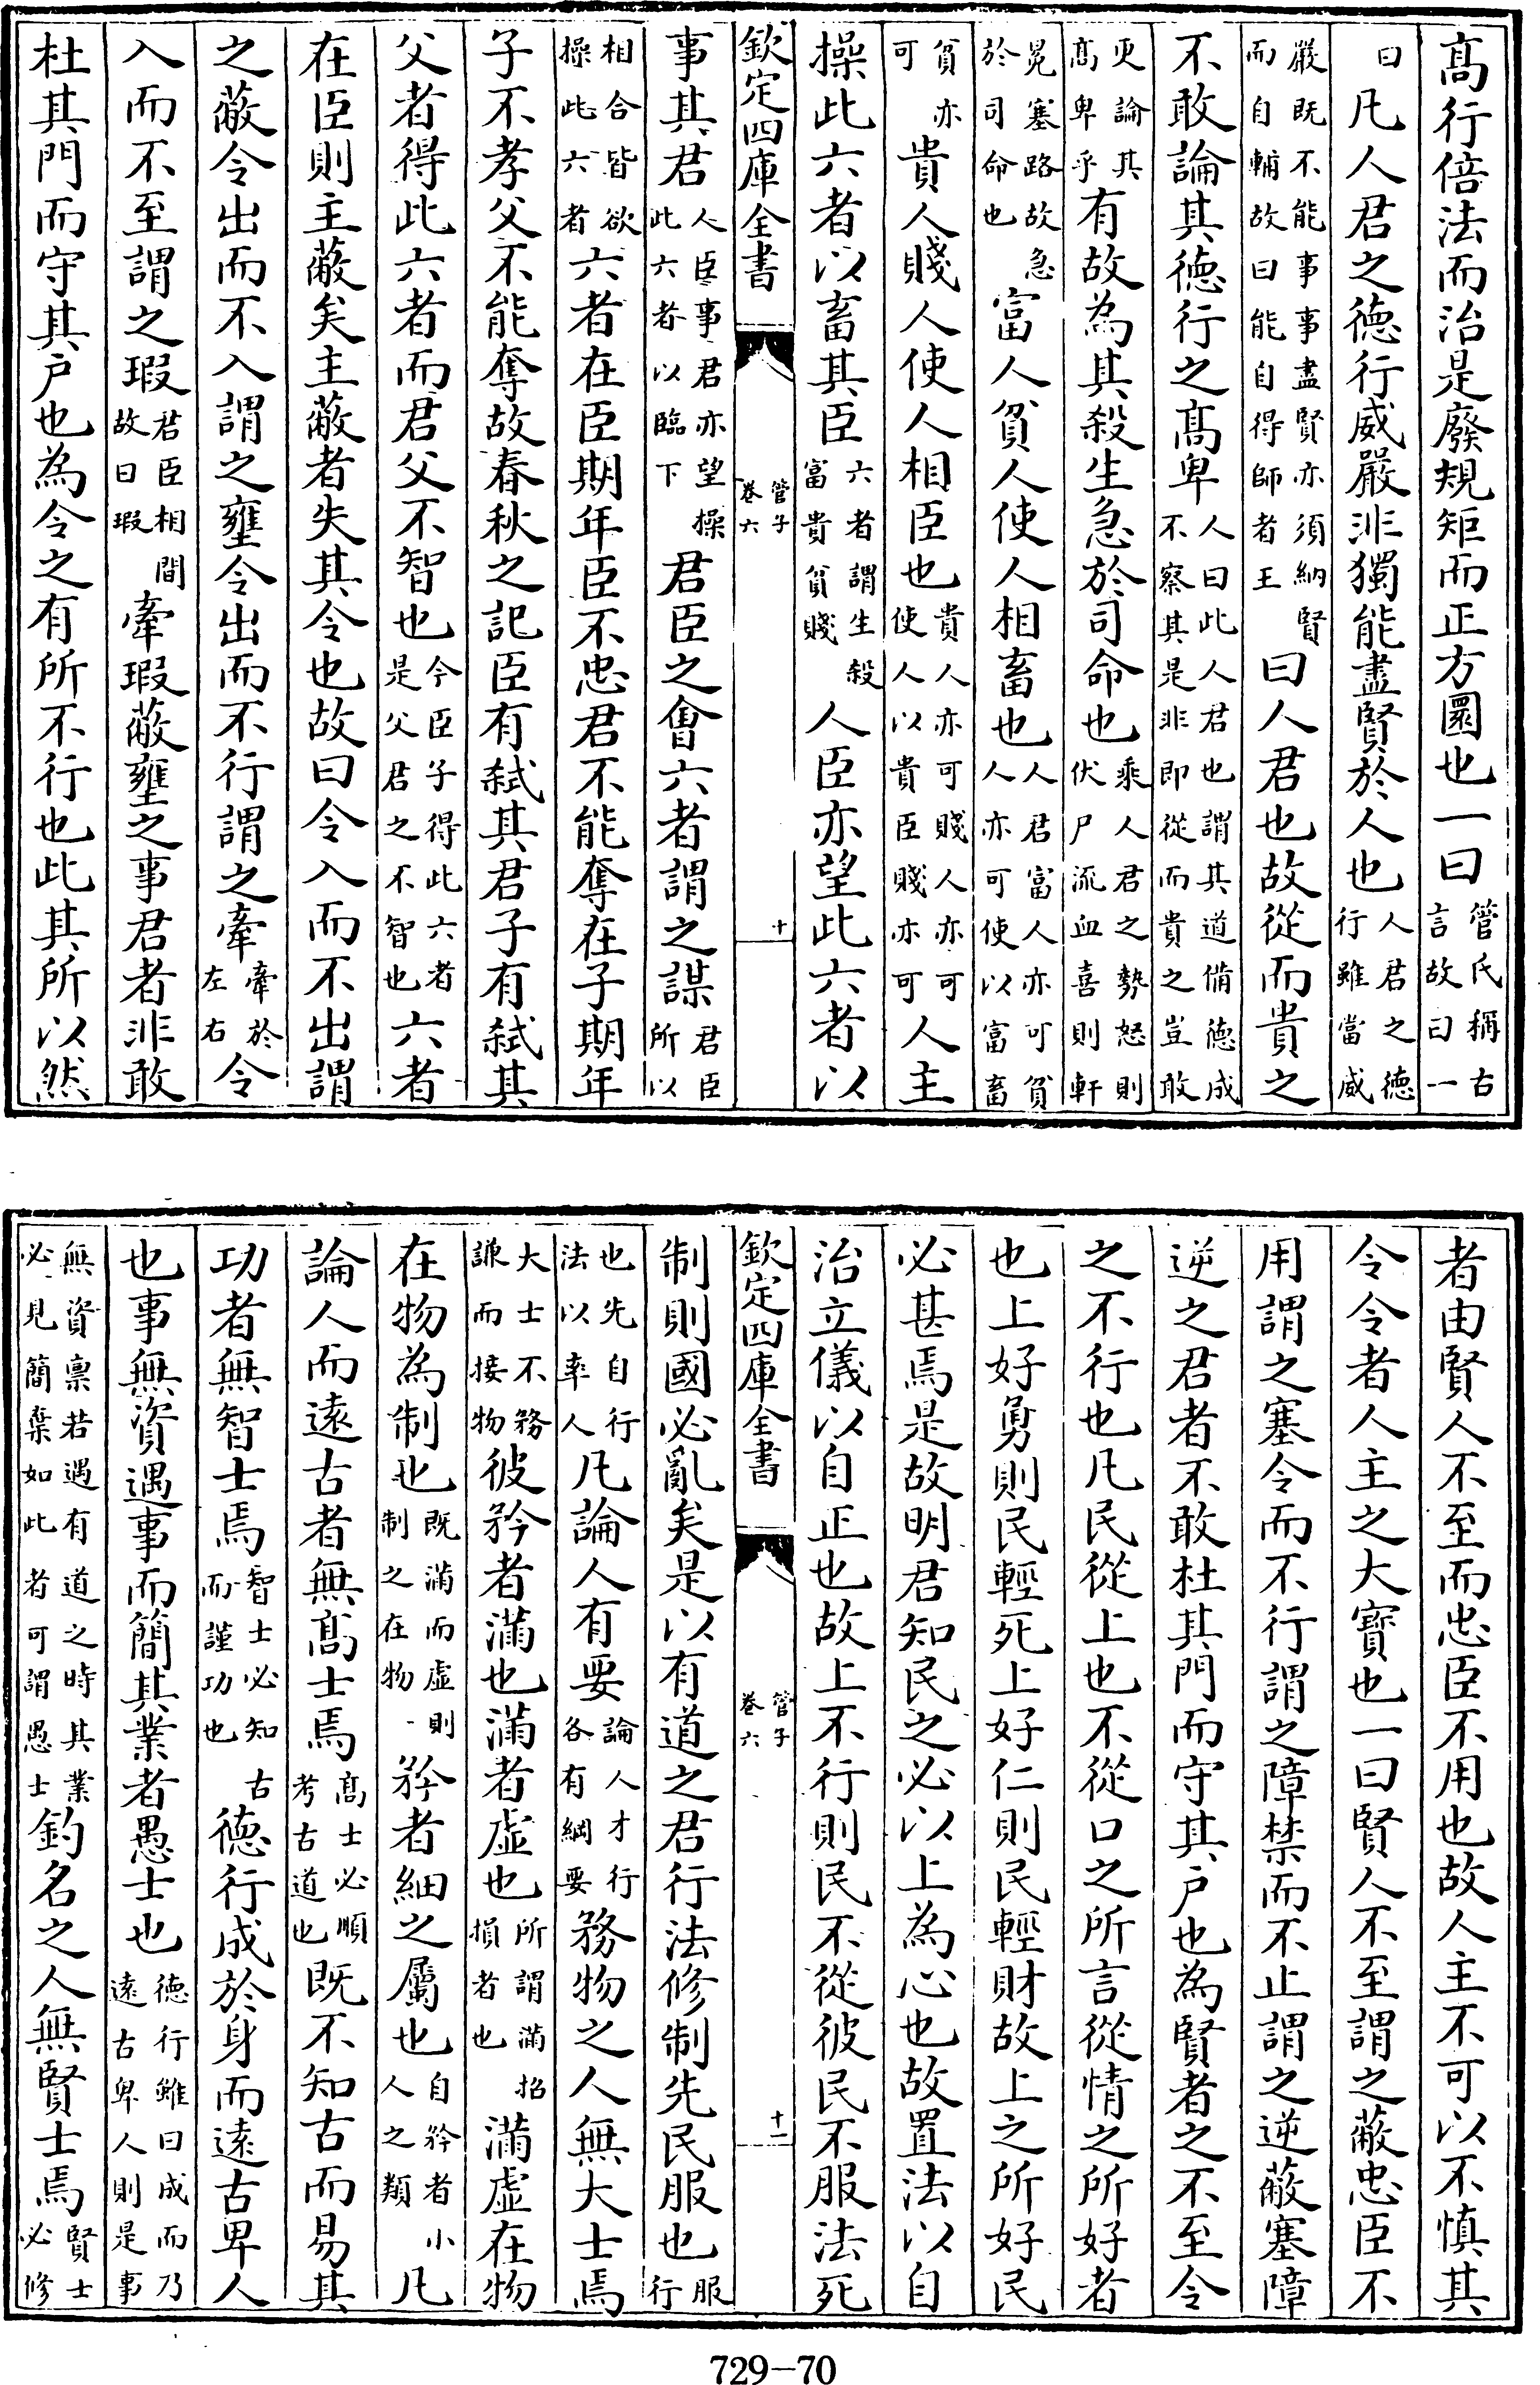 高行倍法而治是廢規矩而正方圜也一曰管氏稱古言故曰一
曰凡人君之德行威嚴非獨能盡賢於人也人君之德行雖當威
嚴既不能事事盡賢亦須納賢而自輔故曰能自得師者王曰人君也故從而貴之
不敢論其徳行之髙卑人曰此人君也謂其道備德成不察其是非即從而貴之豈敢
更論其髙卑乎有故為其殺生急於司命也乘人君之勢怒則伏尸流血喜則軒
冕塞路故急於司命也富人貧人使人相畜也人君富人亦可貧人亦可使以富畜
貧亦可貴人賤人使人相臣也貴人亦可賤人亦可使人以貴臣賤亦可人主
操此六者以畜其臣六者謂生殺富貴貧賤人臣亦望此六者以
欽定四庫全書
管子卷六
十
事其君人臣事君亦望操此六者以臨下君臣之會六者謂之謀君臣所以
相合皆欲操此六者六者在臣期年臣不忠君不能奪在子期年
子不孝父不能奪故春秋之記臣有弑其君子有弑其
父者得此六者而君父不智也今臣子得此六者是父君之不智也六者
在臣則主蔽矣主蔽者失其令也故曰令入而不出謂
之蔽令出而不入謂之壅令出而不行謂之牽牽於左右令
入而不至謂之瑕君臣相間故曰瑕牽瑕蔽壅之事君者非敢
杜其門而守其户也為令之有所不行也此其所以然
者由賢人不至而忠臣不用也故人主不可以不慎其
令令者人主之大寳也一曰賢人不至謂之蔽忠臣不
用謂之塞令而不行謂之障禁而不止謂之逆蔽塞障
逆之君者不敢杜其門而守其户也為賢者之不至令
之不行也凡民從上也不從口之所言從情之所好者
也上好勇則民輕死上好仁則民輕財故上之所好民
必甚焉是故明君知民之必以上為心也故置法以自
治立儀以自正也故上不行則民不從彼民不服法死
欽定四庫全書
管子卷六
十一
制則國必亂矣是以有道之君行法修制先民服也服行
也先自行法以率人凡論人有要論人才行各有綱要務物之人無大士焉
大士不務謙而接物彼矜者滿也滿者虛也所謂滿招損者也滿虛在物
在物為制也既滿而虛則制之在物矜者細之屬也自矜者小人之類凡
論人而遠古者無髙士焉髙士必順考古道也既不知古而易其
功者無智士焉智士必知古而謹功也德行成於身而遠古卑人
也事無資遇事而簡其業者愚士也德行雖曰成而乃遠古卑人則是事
無資禀若遇有道之時其業必見簡棄如此者可謂愚士釣名之人無賢士焉賢士必修
729-70